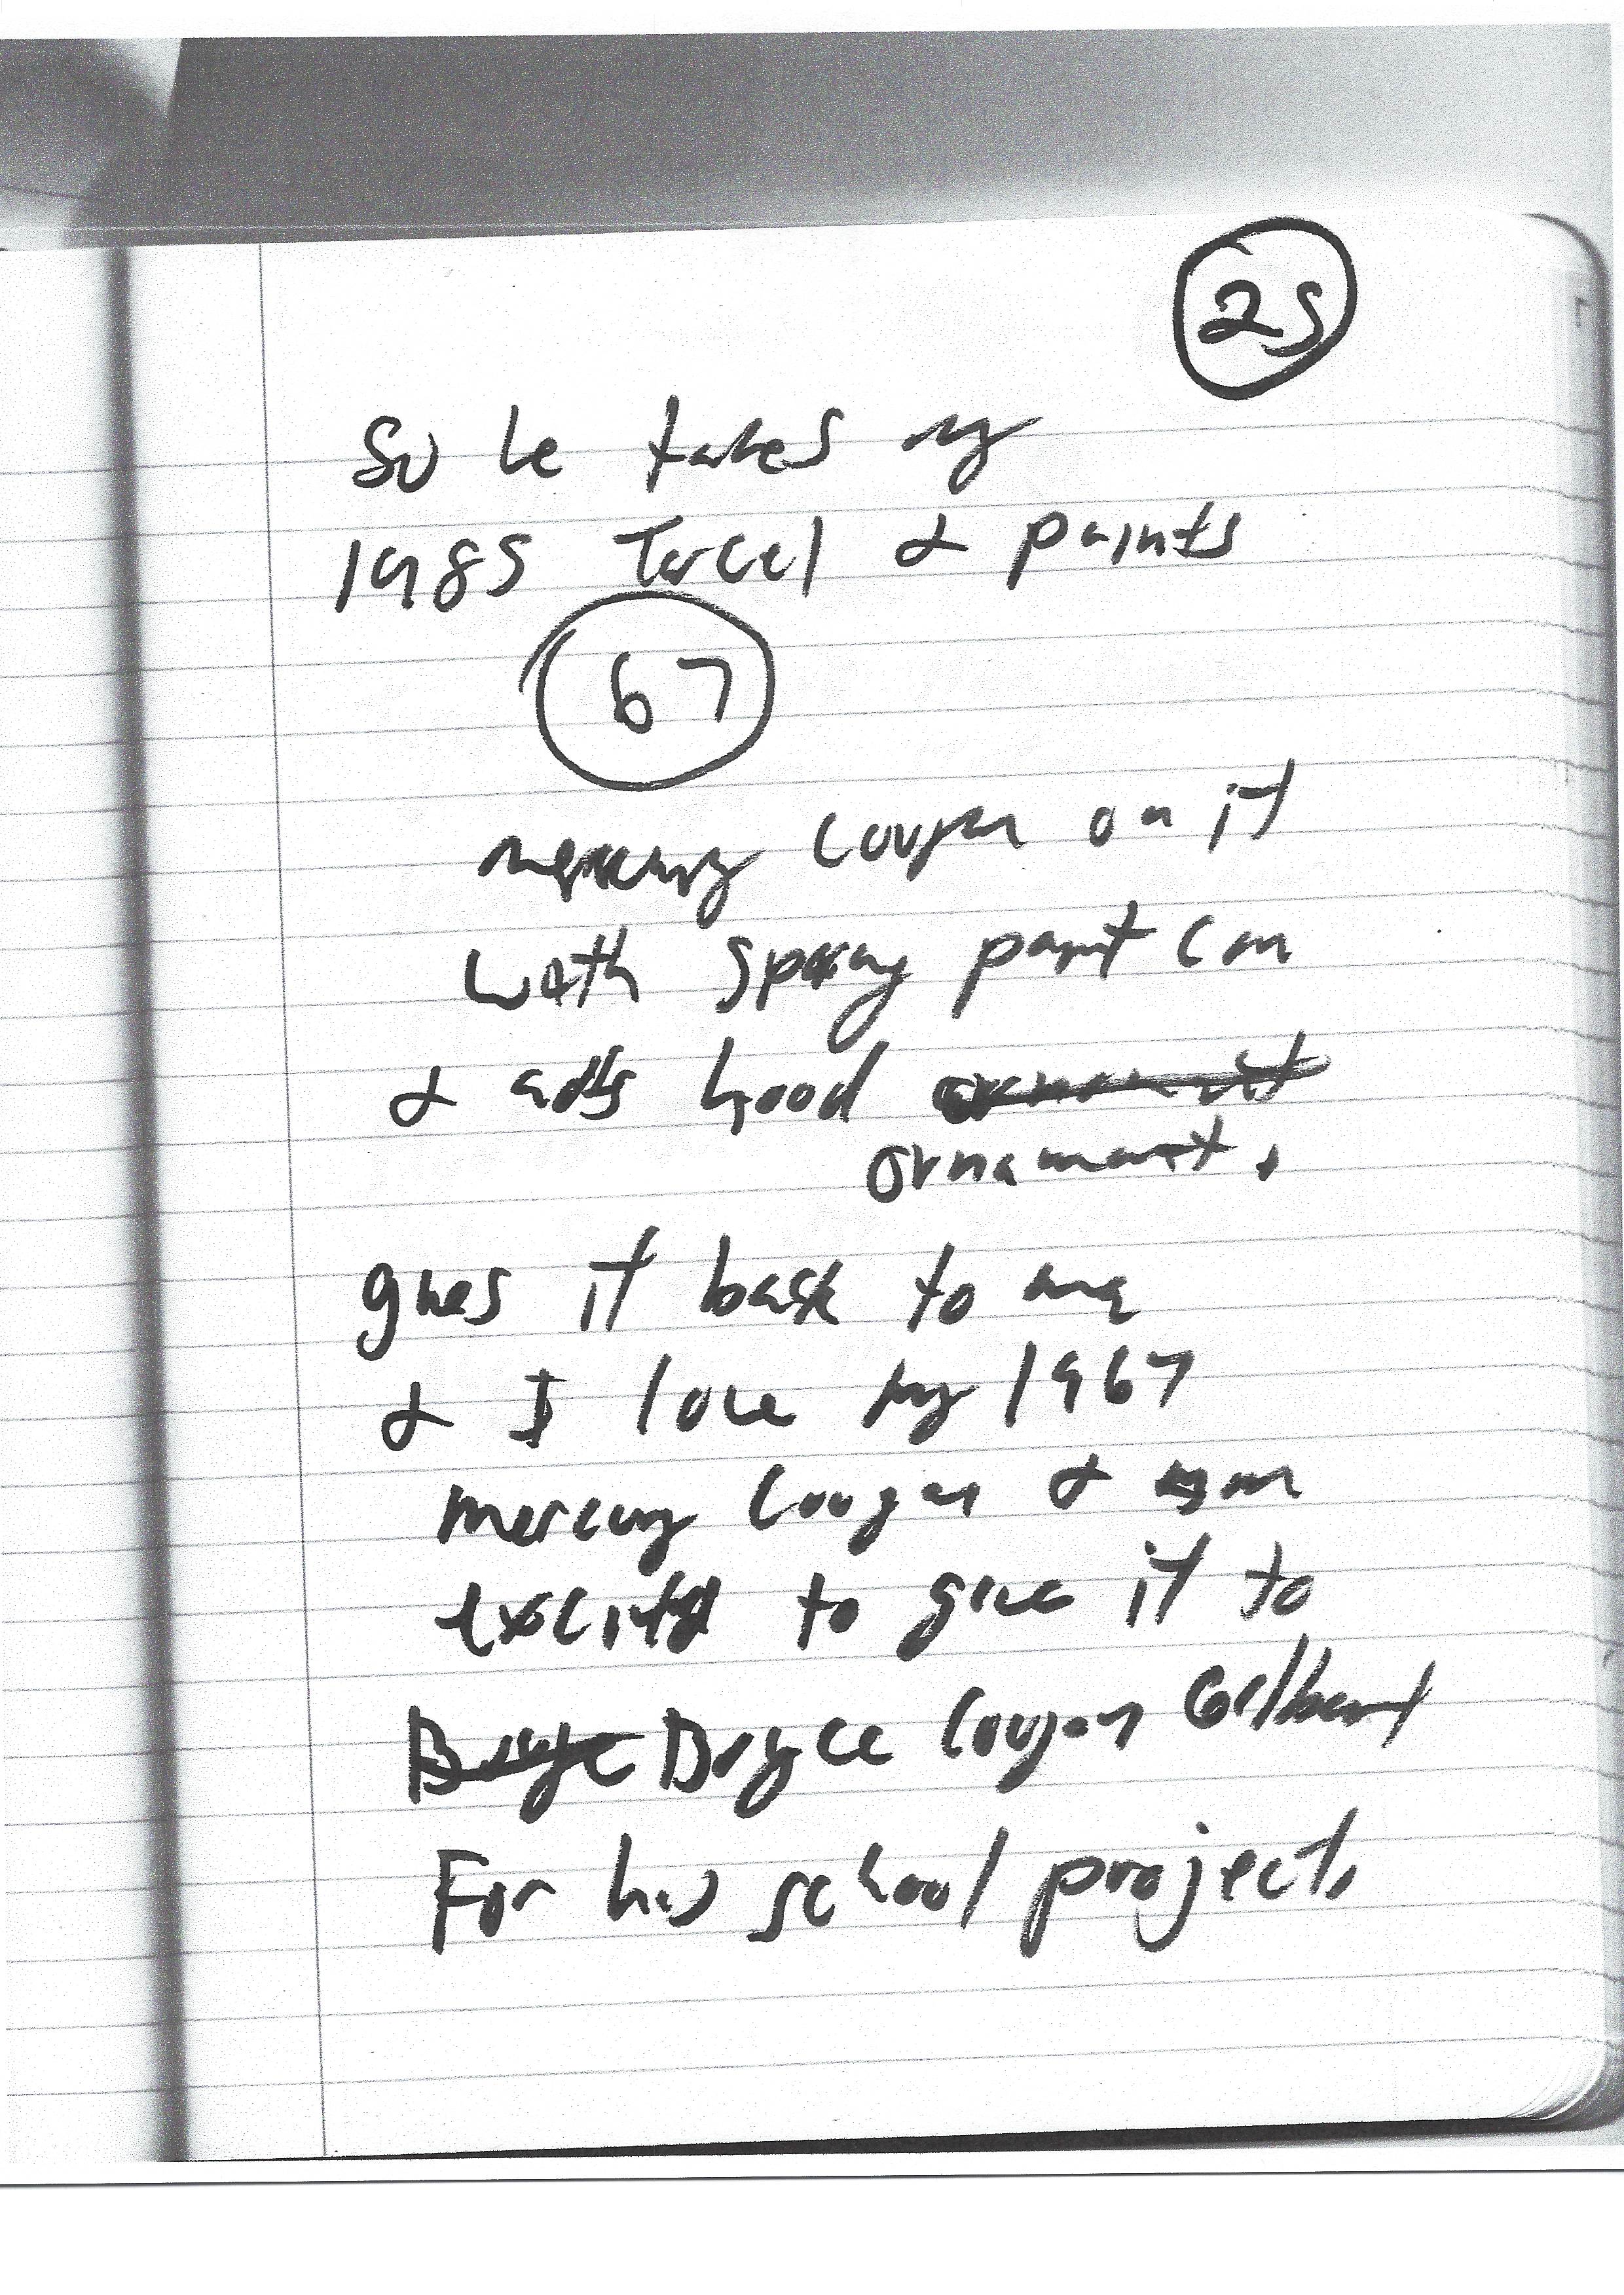 25
So he takes my
1985 Tercel & paints
67
mercury Cougar on it
with spray paint can
& adds hood ornament
ornament.
gives it back to me
& I love my 1967
mercury Cougar & am
excited to give it to
Bryce Bryce Cougar Gilbert
For his school project.